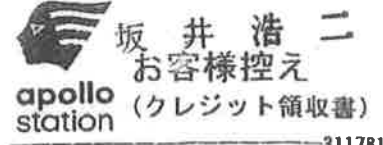 坂井浩二
お客様控え
apollo
station
(クレジット領収書)
311781